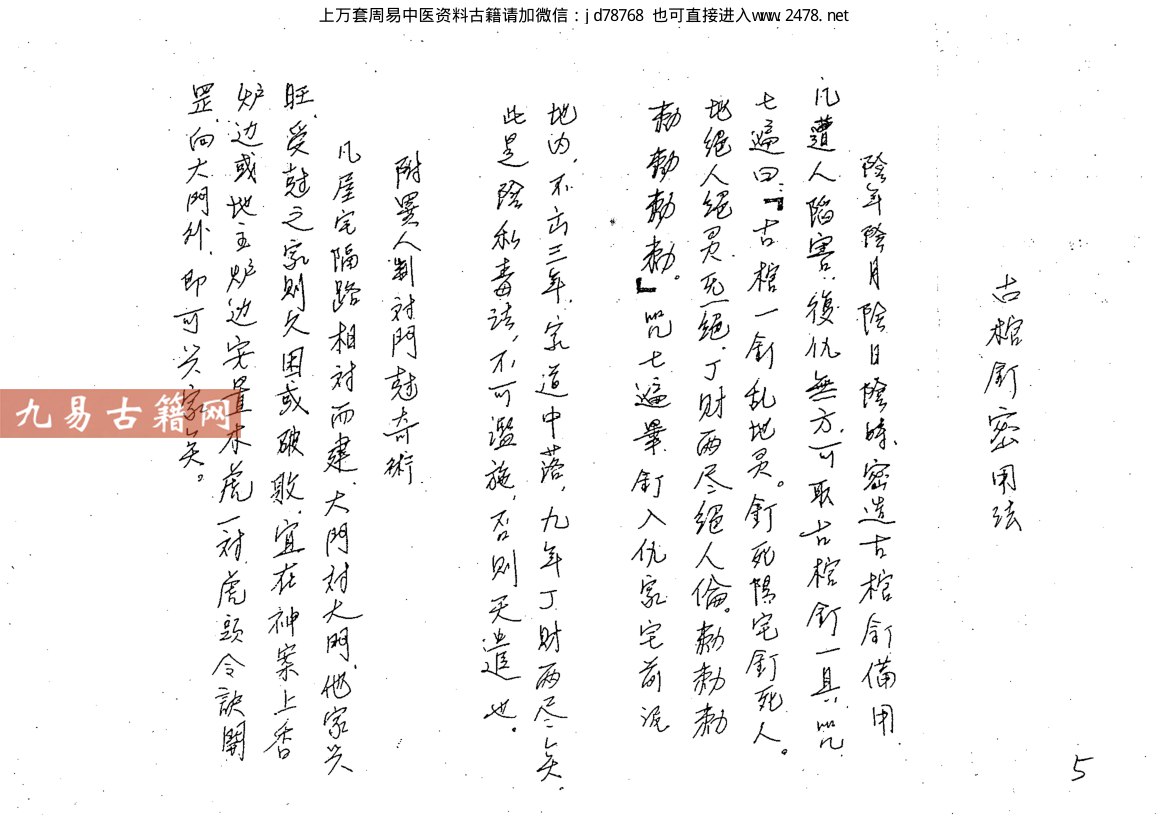 上万套周易中医资料古籍请加微信：jd78768 也可直接进入www.2478.net
古棺釘密用法
陰年陰月陰日陰時，密造古棺釘備用
凡遭人陷害，復仇無方，可取古棺釘一具，咒
七遍曰：「古棺一釘乱地灵。釘死陽宅釘死人。
地绝人绝灵死绝，丁财两尽绝人倫。勅勅勅
勅勅勅勅。」咒七遍畢，釘入仇家宅前泥
地内，不出三年，家道中落，九年丁财两尽矣。
此是陰私毒法，不可濫施，否则天遣也。
附異人制对門尅奇術
凡屋宅隔路相対而建，大門対大門，他家兴
旺，受尅之家则久困或破敗，宜在神案上香
炉边或地主炉边安置木虎一対，虎头令訣開
罡向大門外，即可兴家矣。
九易古籍网
5